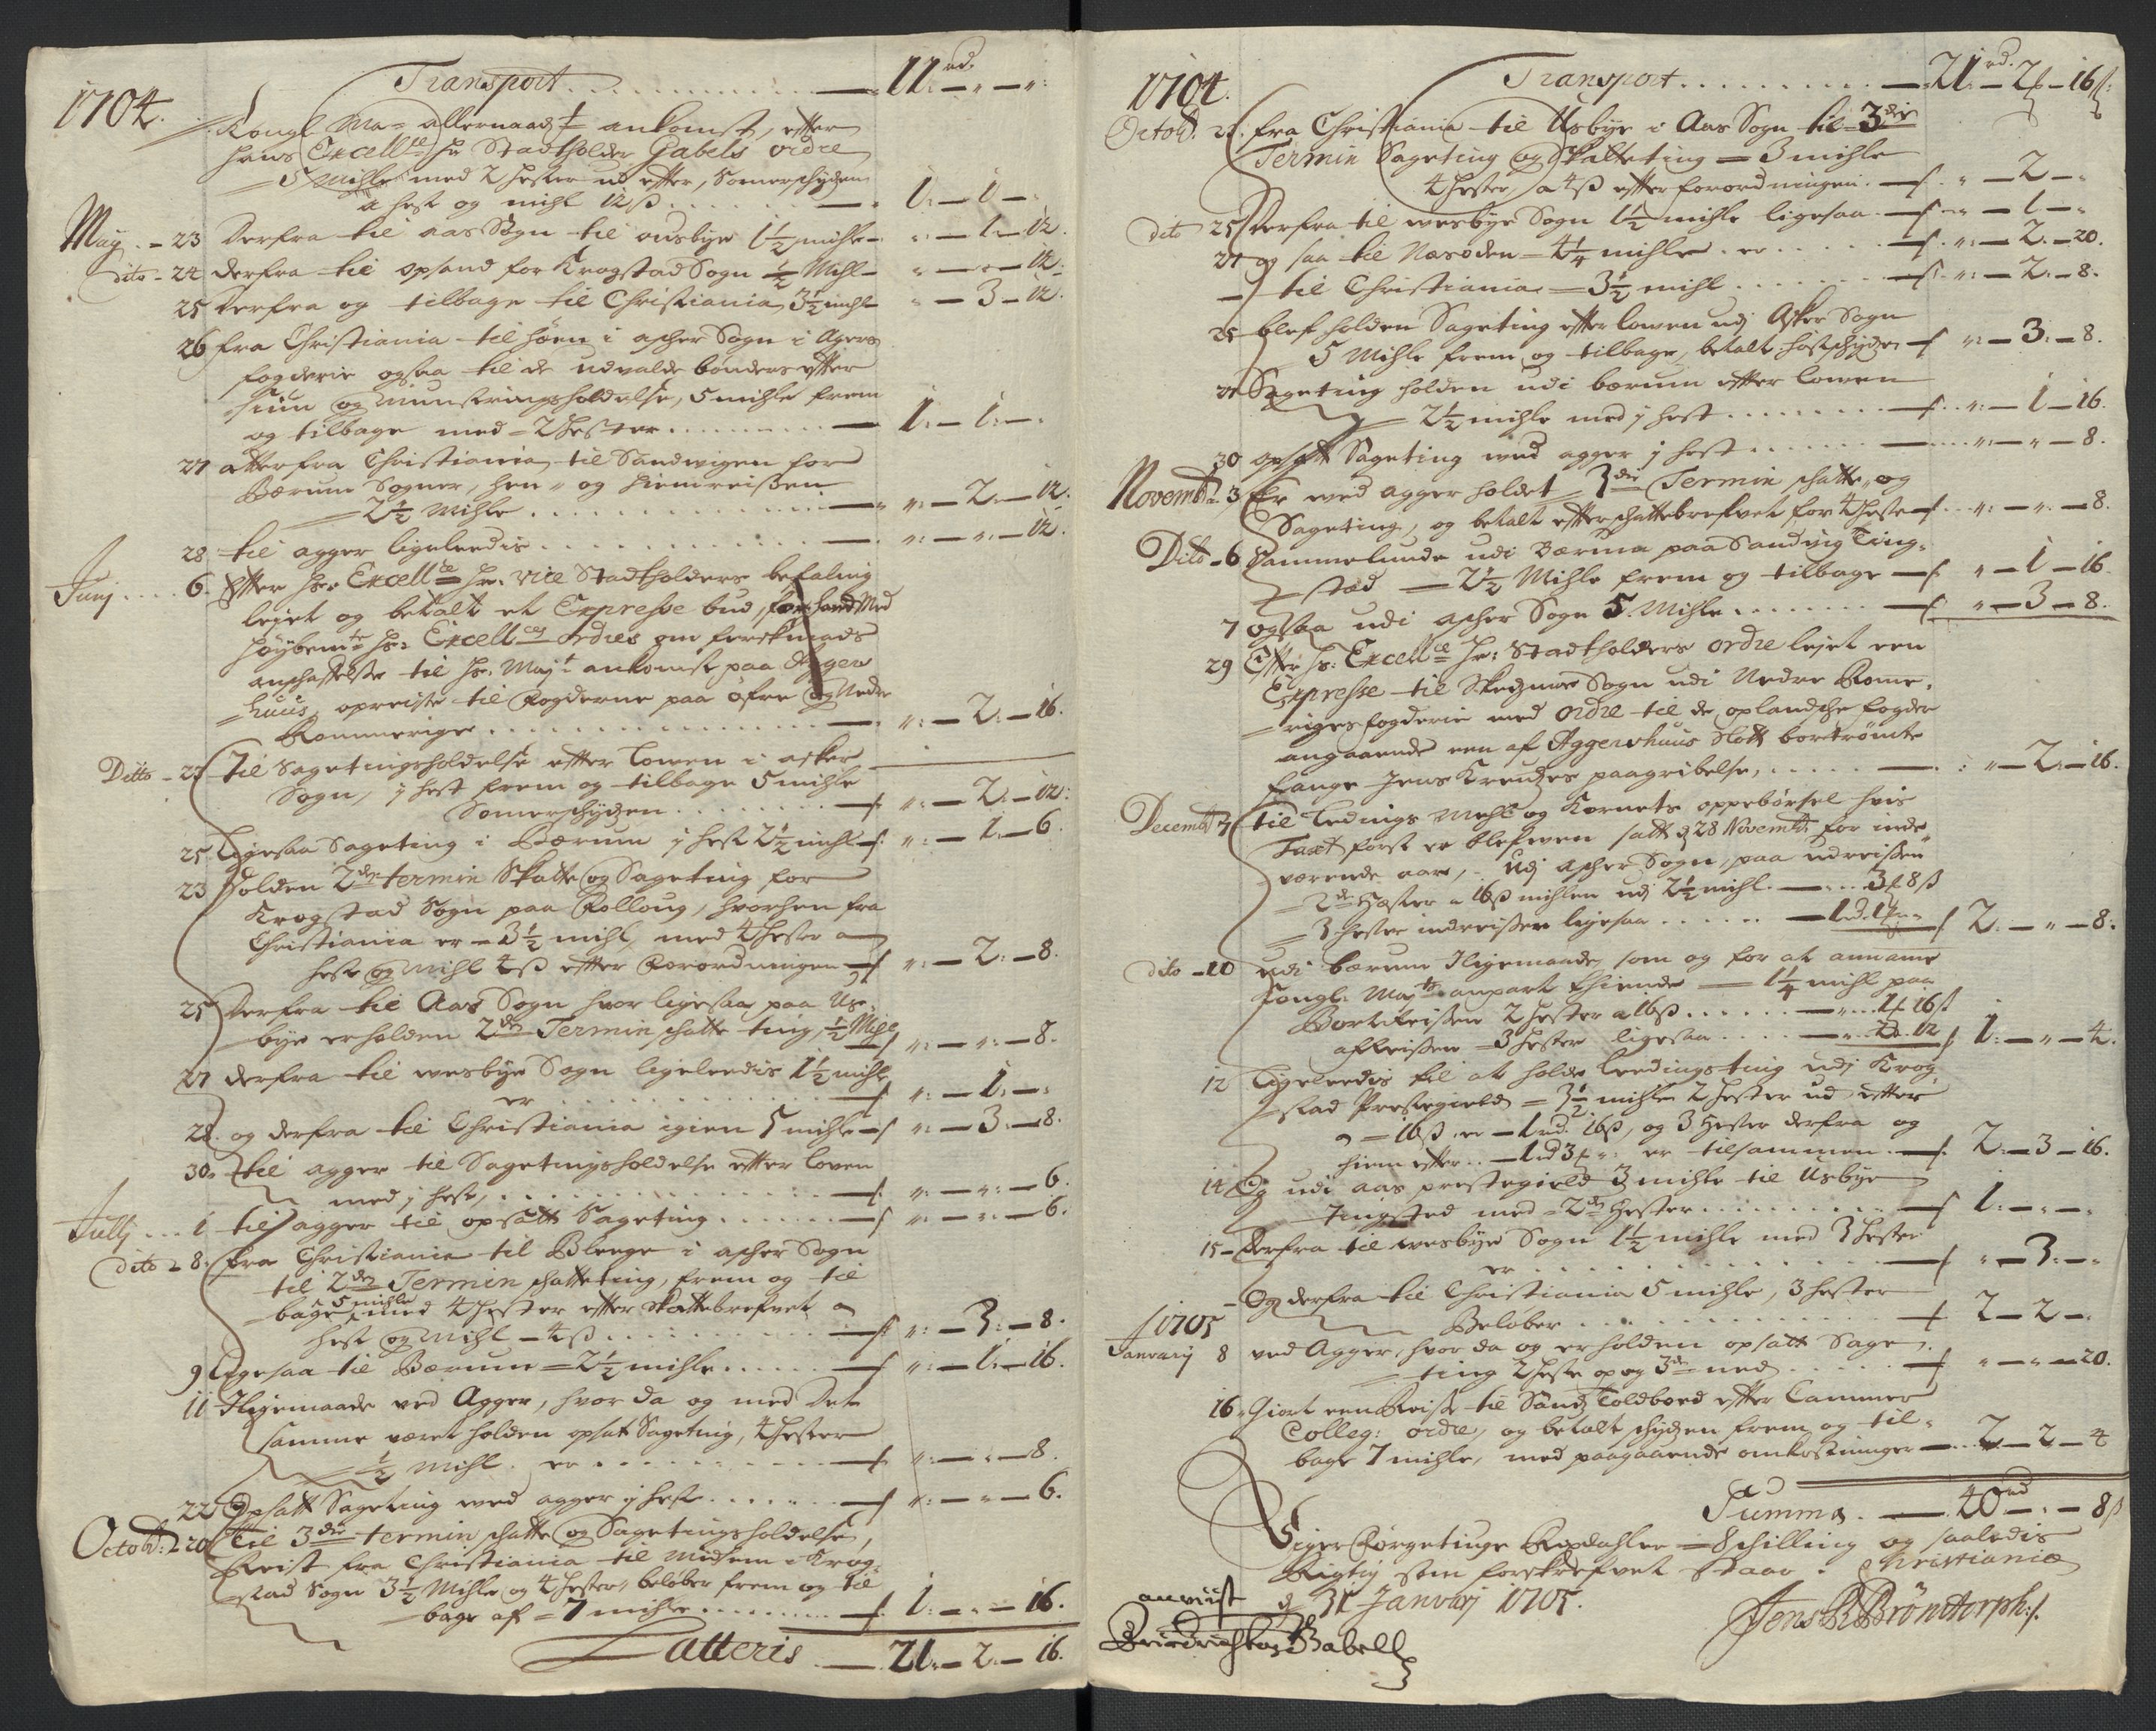 1704.
Transport . . . . . . . . . . — 11 rd. — „ — „ :
Kongl Ma. allernaadt ankomst, efter
hans Excell.ce Hr Stadtholder Gabels ordre
5 Mihle med 2 hester ud efter, Somerschydzen
a hest og mihl 12 ß . . . . . . — 1: — 1 — „
May. - 23 Derfra til Aas Sogn til ousbye 1½ mihle — „ — 1 — 12.
Dito - 24 derfra til opsand for Krogstad Sogn ½ Mihl — „ — „ — 12:
25 Derfra og tilbage til Christiania 3½ mihl — „ — 3 — 12.
26 fra Christiania til høen i ascher Sogn i Agers
fogderie ogsaa til de udvalde bønders efter
Siun og Munstrings holdelse, 5 mihle frem
og tilbage med = 2 hester . . . . . . — 1: — 1: — „
27 atter fra Christiania til Sandwigen for
Bærums Sogner, hen „ og hiemreisen
2½ Mihle . . . . . . . . . . — „: — 2 — 12.
28 til agger ligeleedis . . . . . . . — „: — „: — 12.
Junj . . . 6. Efter Hs. Excell.ce Hr. Vice Stadtholders befaling
lejet og betalt et Expresse bud, med
høybem.te Hs: Excell.ces ordres om forskudz
anschaffelse til Hs. May.t ankomst paa Agger
huus, opreiste til fogderne paa øfre og Nedre
Rommerige . . . . . . . . . . — „: — 2: — 16.
Ditto - 23 Til Sagetingsholdelse efter Lowen i asker
Sogn, j hest frem og tilbage 5 mihle
Somerschydzen . . . . . . . — „: — 2. — 12:
25 Ligesaa Sageting i Bærum j hest 2½ mihl — „: — 1. — 6.
23 Holden 2den termin Skatte og Sageting for
Krogstad Sogn paa Rolloug, hvorhen fra
Christiania er = 3½ mihl, med 4 hester a
hest og mihl 4 ß efter Forordningen — „: — 2: — 8.
25 Derfra til Aas Sogn hvor ligesaa paa Us-
bye er holden 2den Termin schatte ting, ½ Mihl — „: — „: — 8.
27 derfra til wesbye Sogn ligeleedis 1½ mihl
er . . . . . . . . . . — „: — 1: — „:
28. og derfra til Christiania igien 5 mihle — „: — 3. — 8:
30. til agger til Sagetingsholdelse efter loven
med j hest, . . . . . . . . . — „: — „: — 6.
Julij . . . 1 til agger til opsatt Sageting . . . . . — „: — „: — 6.
dito - 8. fra Christiania til Blenge i ascher Sogn
til 2den Termin schatteting, frem og til
bage 5 mihle med 4 hester efter Skattebrefvet a
hest og Mihl — 4 ß . . . . . . . — „: — 3: — 8.
9 Ligesaa til Bærum = 2½ mihle . . . . — „: — 1. — 16.
11 Iligemaade ved Agger, hvor da og med det
samme været holden opsat Sageting, 4 hester
½ Mihl. er . . . . . . . . — „: — „ — 8.
22 Opsatt Sageting wed agger j hest . . . . . — „: — „ — 6.
Octobr: - 20 Til 3die termin schatte og Sagetingsholdelse,
Reist fra Christiania til Midsem i Krog-
stad Sogn 3½ Mihle og 4 hester, beløber frem og til
bage af = 7 mihle . . . . . . . — 1: — „ — 16.
Latteris . — 21. — 2. — 16.
1704.
Transport . . . . . . . . . — 21 rd. — 2 — 16 ß:
Octobr. 22. fra Christiania til Usbye i Aas Sogn til 3die
Termin Sageting og Skatteting — 3 mihle
4 hester, a 4 ß efter forordningen. — „ — 2 — „
dito 25 Derfra til wesbye Sogn 1½ mihle ligesaa — „ — 1 — „
27 og saa til Næsoden — 4¼ mihle. er . . . . — „: — 2. — 20.
— til Christiania — 3½ mihl . . . . . . — „: — 2: — 8.
25 blef holden Sageting efter lowen udj Asker Sogn
5 Mihle frem og tilbage, betalt høstschydzen — „: — 3: — 8.
27 Sageting holden udi bærum efter lowen
2½ mihle med j hest . . . . . . . — „: — 1 — 16.
30 opsatt Sageting wed agger j hest . . . . . . — „: — „ — 8.
Novembr. 3 Er wed agger holdet 3die Termin schatte „ og
Sageting, og betalt efter schattebrefvet for 4 heste — „: — „: — 8.
Ditto - 6 Sammelunde udi Bærum paa Sandvig Ting-
stæd — 2½ Mihle frem og tilbage — „ — 1 — 16
7 ogsaa udi ascher Sogn 5 Mihle . . . . . . — „ — 3 — 8.
29 Efter Hs: Excell.ce Hr: Stadtholders ordre lejet een
Expresse til Skedzmoe Sogn udi Nedre Rome-
riges fogderie med ordre til de oplandsche fogder
angaaende een af Aggershuus Slott bortrømte
fange Jens Kreudzes paagribelse, . . . . . — : „ — 2: — 16.
Decembr. 7 til Ledings Mehl og Kornets oppebørsel hvis
Taxt først er blefwen satt d 28 Novembr. for inde-
værende aar, - Udj ascher Sogn, paa udreisen
2de Hæster a 16 ß mihlen udj 2½ mihl. — . . 3 8 ß
3 hester indreisen ligesaa . . . . . — 1 rd. 1 „ „ 2. — „ — 8:
dito - 10 udi bærum Iligemaade, som og for at anname
Kongl. May.ts anpart thiende — 1¼ mihl paa
Bortreisen 2 hester a 16 ß . . . . . — „ . . . 1 16 ß
afreisen = 3 hester ligesaa . . . . — „ . . 2. 12 1: — „ — 4.
12 Ligeleedis til at holde leedingsting udj Krog-
stad Prestegield = 3½ mihle 2 hester ud efter
a = 16 ß er — 1 rd. 16 ß, og 3 hester derfra og
hiem efter . . — 1 rd 3 „ er tilsammen. — 2. — 3 — 16.
14 Og udi aas prestegield 3 mihle til Usbye
Tingsted med = 2de hester . . . . . . . . — 1. — „ — „
15 — Derfra til wesbye Sogn 1½ mihle med 3 hester
er . . . . . . . . . . . — „ — 3: — „
— Og derfra til Christiania 5 mihle, 3 hester
Beløber . . . . . . . . . — 2 — 2 — „
1705
January 8 ved Agger, hvor da og er holden opsatt Sage-
ting 2 heste op og 3de ned . . . . . — „ — „ — 20.
16. Giort een Reise til Sand Toldboed efter Cammer
Colleg: ordre, og betalt schydzen frem og til-
bage 7 mihle, med paagaaende omkostninger — 2 — 2 — 4
Summa . — 40 rd — „ — 8 ß
Siger Førgetiuge Rixdahler — 8 schilling og saaledis
Rigtig som forskrefvet Staar. Christiania
d 31 Januarj 1705.
anviist
Friedrich Gabell
Jens B Brøndtorph:/.